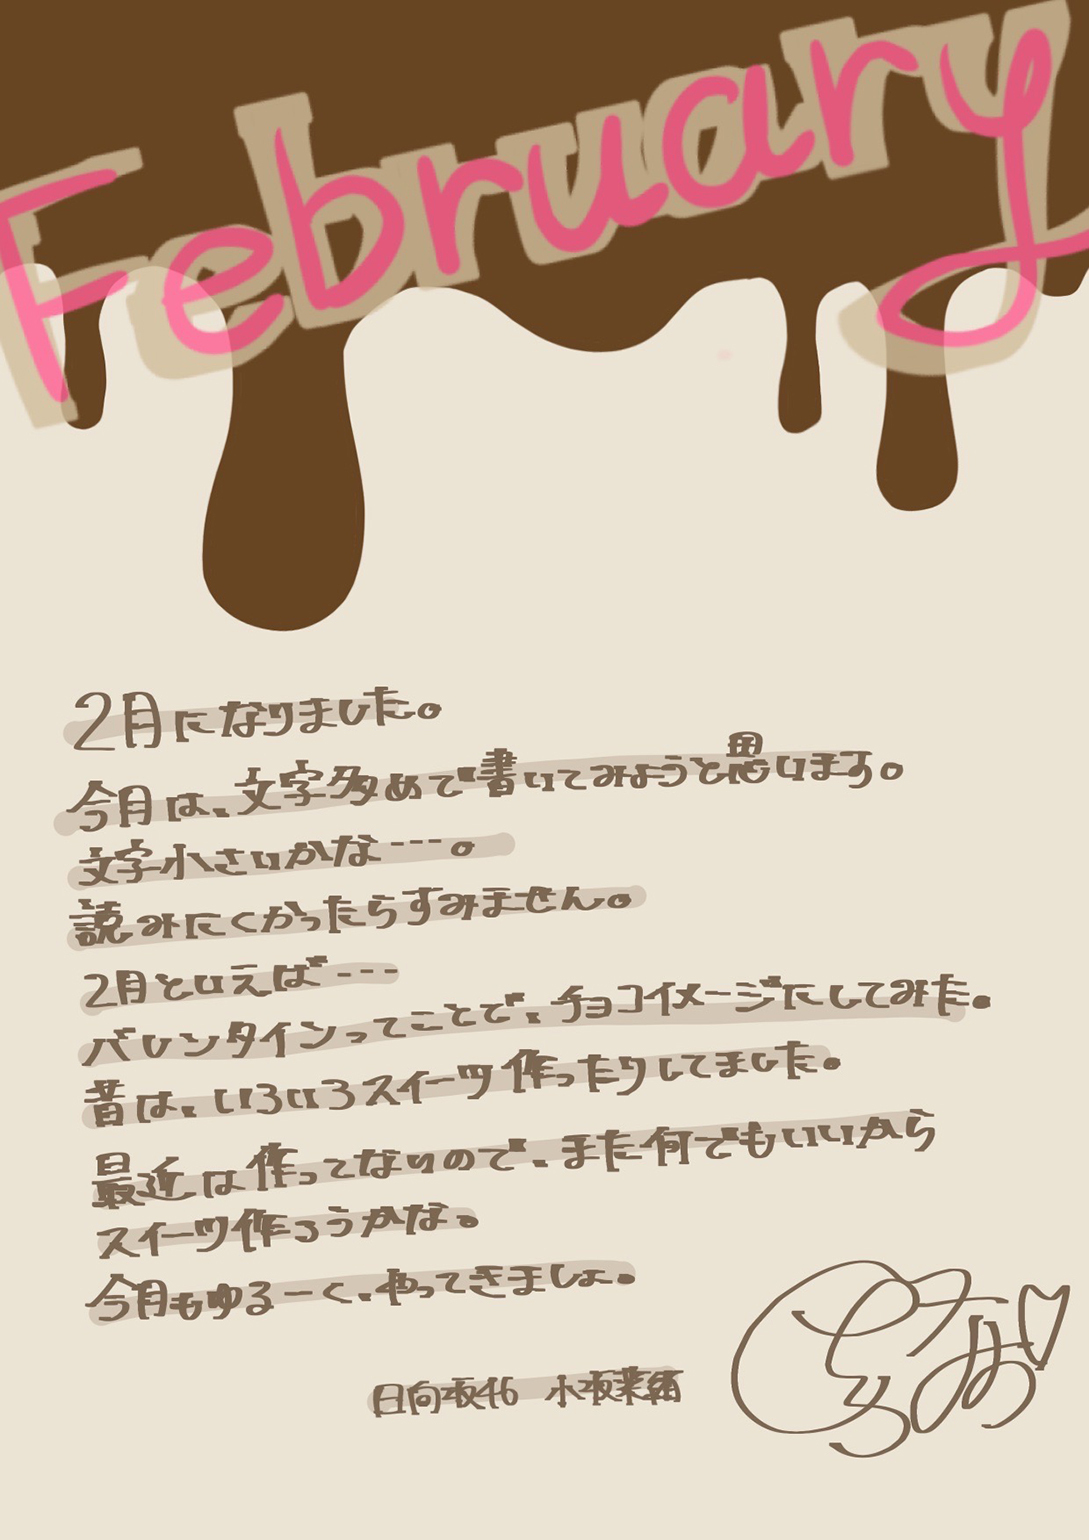 February
2月になりました。
今月は、文字多めで書いてみようと思います。
文字小さいかな---。
読みにくかったらすみません。
2月といえば---
バレンタインってことで、チョコイメージにしてみた。
昔は、いろいろスイーツ作ったりしてました。
最近は作ってないので、また何でもいいから
スイーツ作ろうかな。
今月もゆるーく、やってきましょ。
日向坂46 小坂菜緒